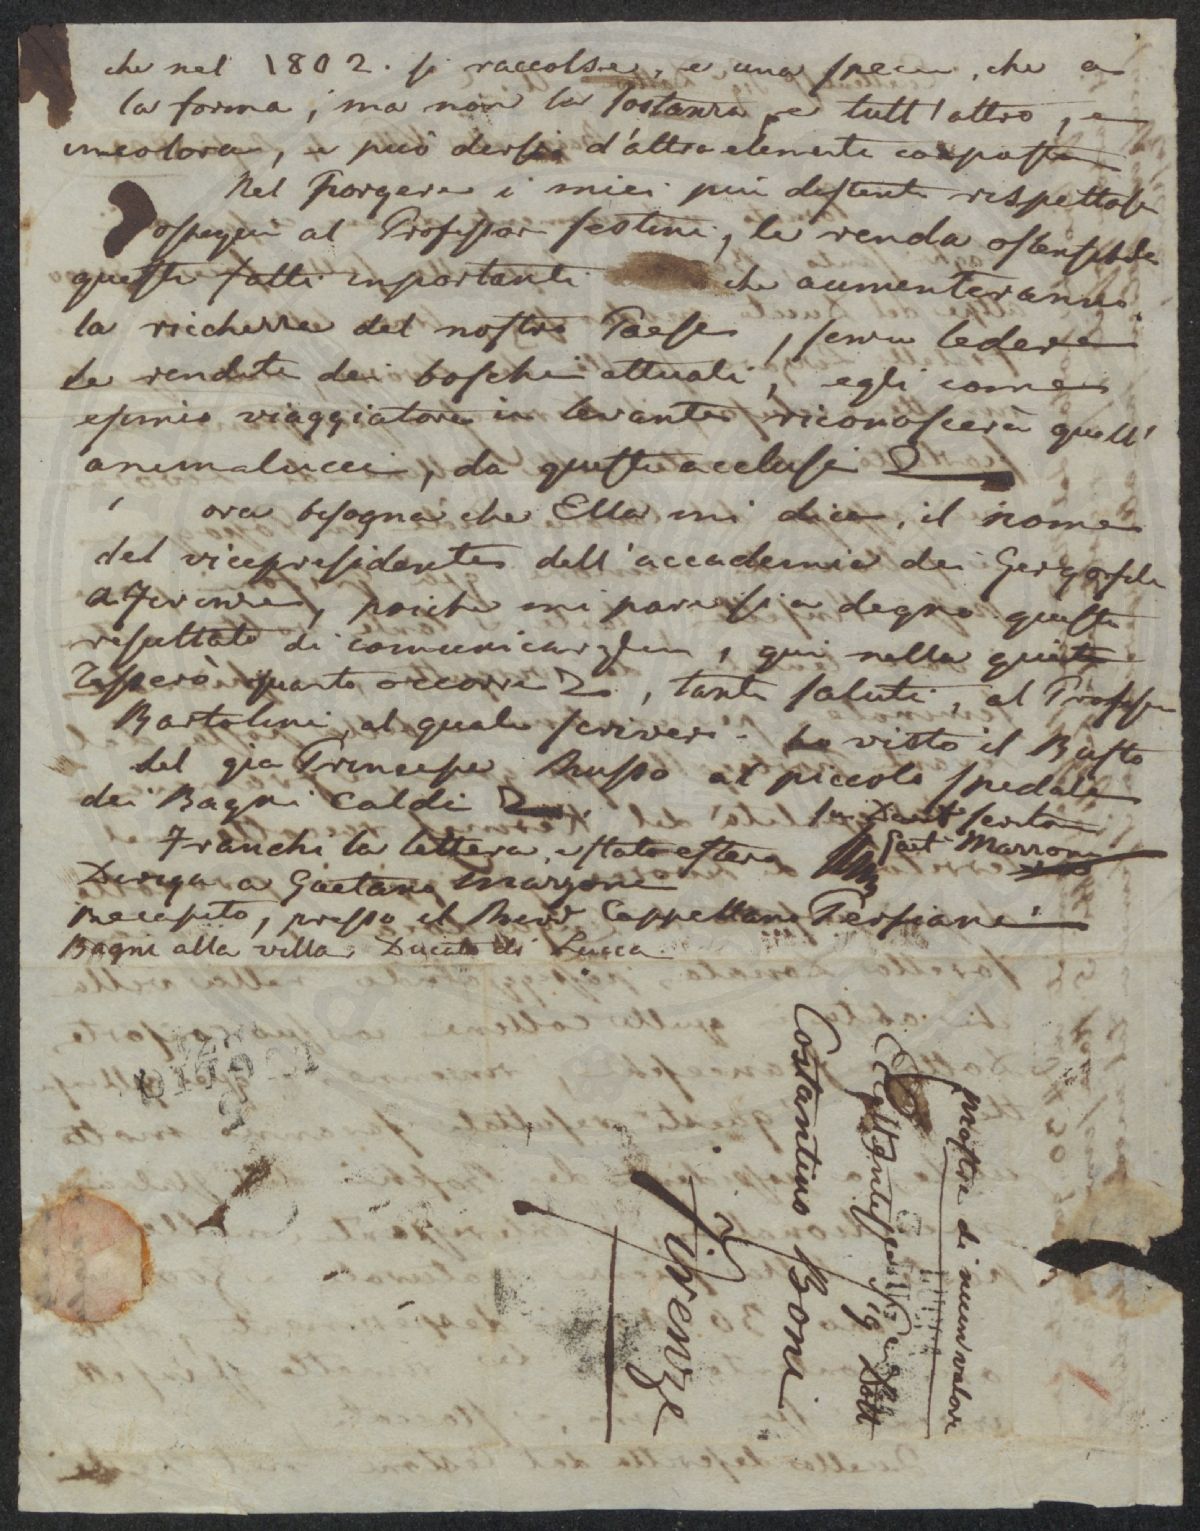 che nel 1802. si raccolse, e una specie, che a
la forma, ma non la sostanza, e tutt'altro, e
incolora, e può dersi d'altro elemento composta
Nel Porgere i miei più distenti rispettosi
ossequi al Professor Sestini, le renda ostensibile
questi fatti importanti che aumenteranno
la ricchezza del nostro Paese, senza ledere
le rendite dei boschi attuali, egli come
esimio viaggiatore in levante riconoscerà quell'
animalucci, da questi acclusi
ora bisogna che Ella mi dica, il nome
del vicepresidente dell'accademia dei Gergofili
a Firenze, poiche mi pare sia degno questo
resultato di comunicarglieli, qui nella
quanto occorre, tanti saluti, al Profess
Bartolini, al quale scriverò. ho visto il Busto
del già Principe Russo al piccolo spedale
dei Bagni Caldi
Gaet Marzoni
Franchi la lettera, e stato estero
Diriga a Gaetano Marzoni
Recapito, presso il Revd Cappellano Persiani
Bagni alla villa Ducato di Lucca
mostre di niun valore
Sig Dott
Costantino Boni
Firenze